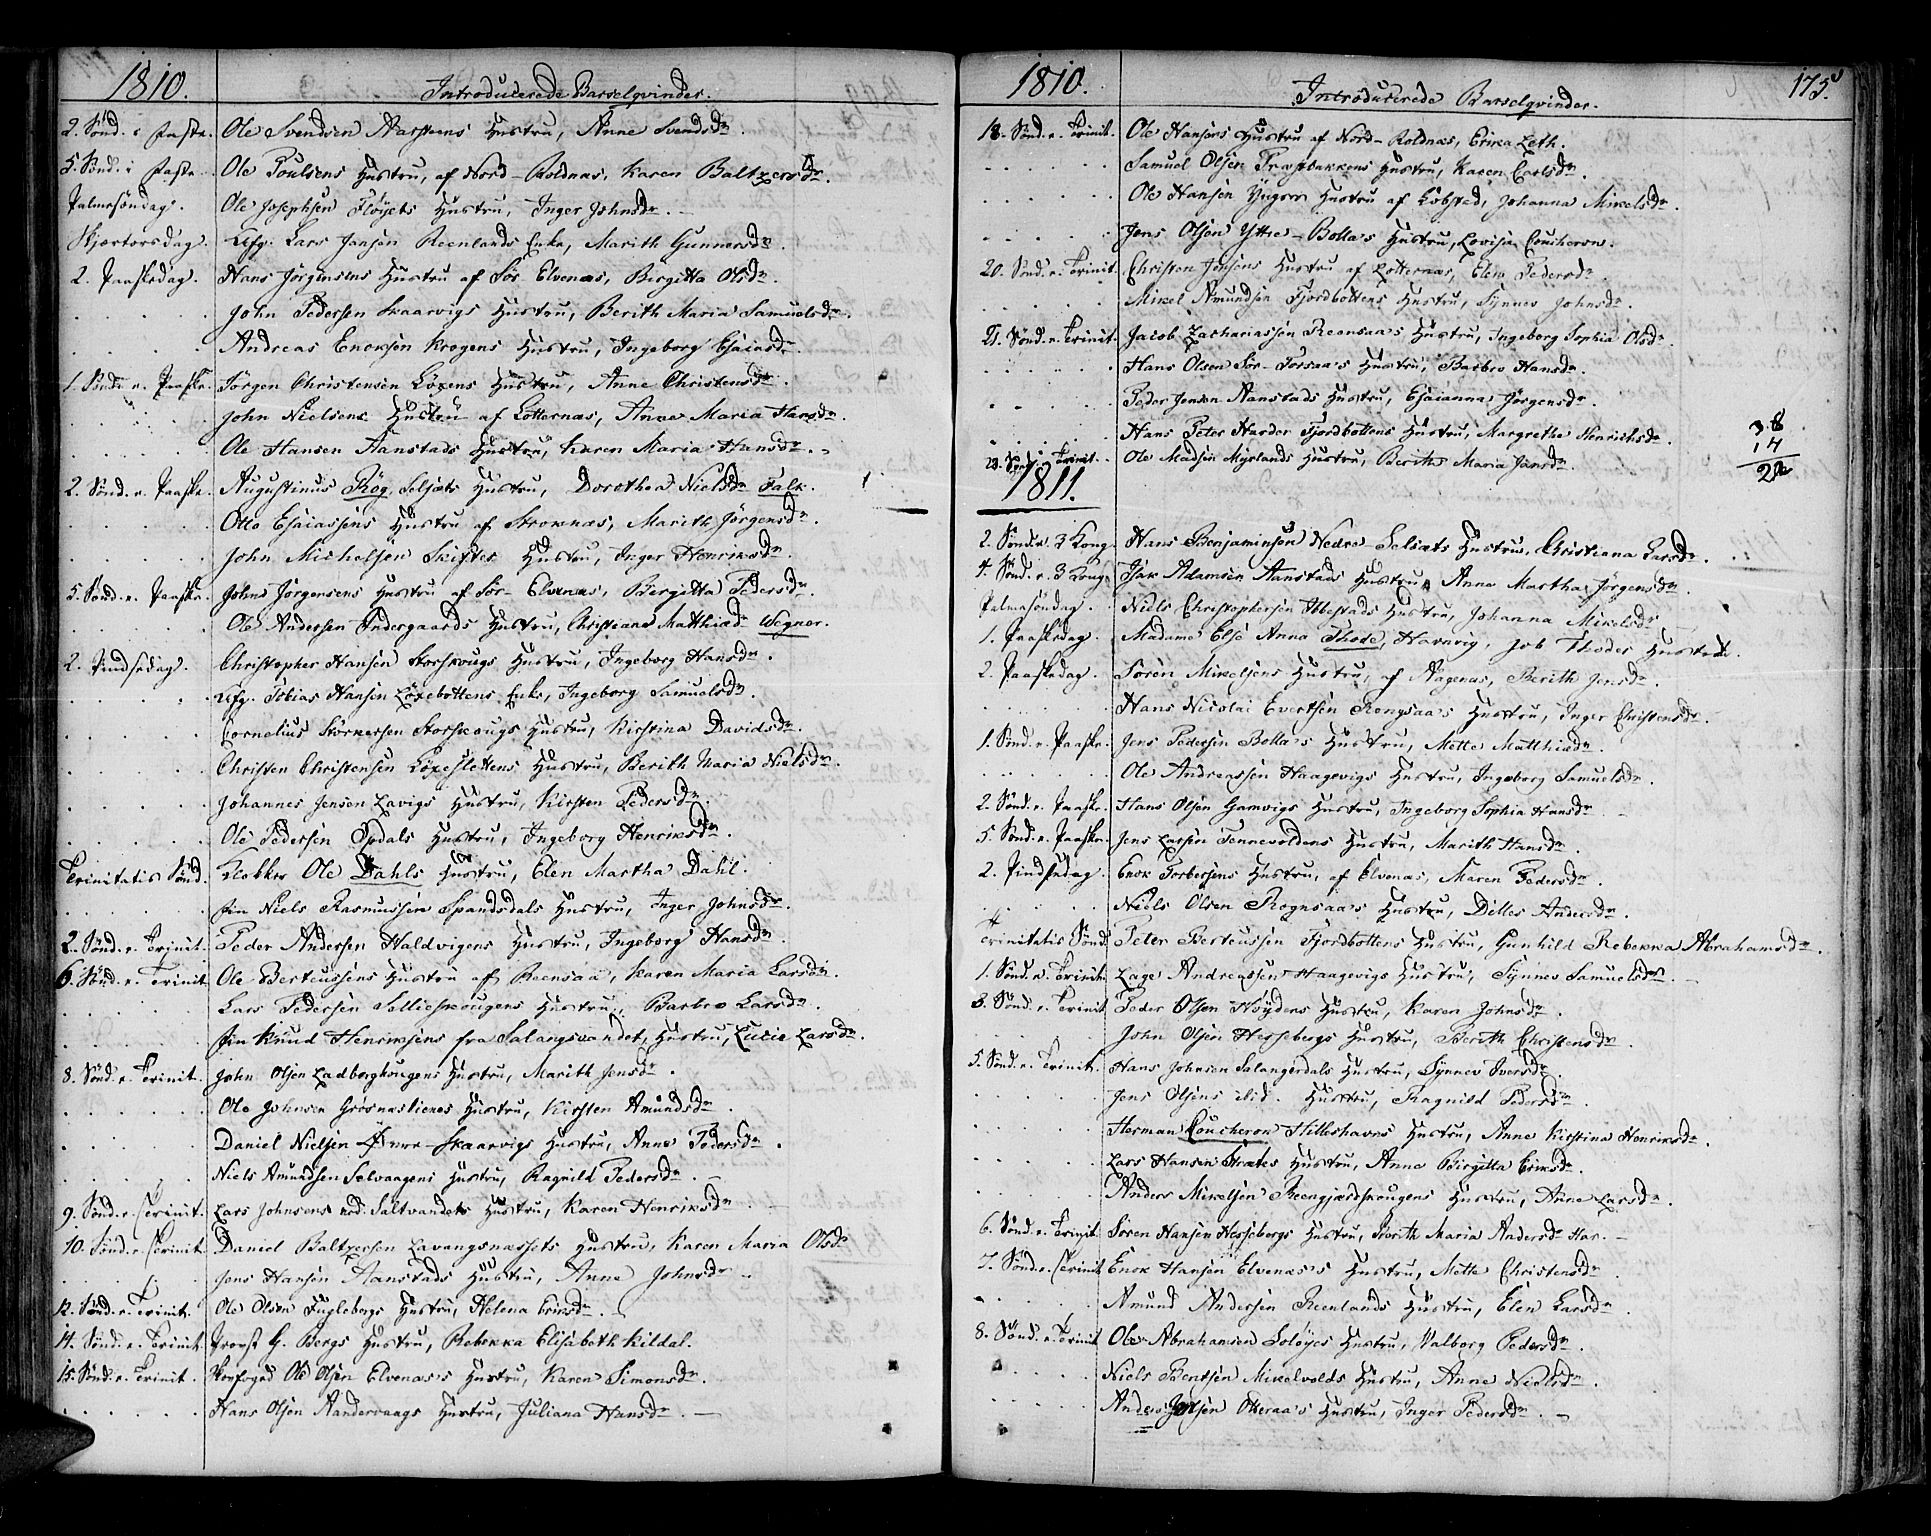 1810.
Introducerede Barselqvinder.
2. Sönd. i Faste. Ole Svendsen Aarsteens Hustru, Anne Svendsdr.
5. Sönd. i Faste. Ole Poulsens Hustru, af Nord-Roldnæs, Karen Baltzersdr.
Palmesöndag. Ole Josephsen Flöyets Hustru, Inger Johnsdr.
Skjærtorsdag. Afg. Lars Jansen Reenlands Enke, Marith Gunnersdr.
2. Paaskedag. Hans Jörgensens Hustru af Sör-Elvenæs, Birgitta Olsdr.
John Pedersen Skaarvigs Hustru, Berith Maria Samuelsdr.
Andreas Enoksen Krogens Hustru, Ingeborg Esaiasdr.
1. Sönd. e. Paaske. Jörgen Christensen Löxens Hustru, Anne Christensdr.
John Nielsens Hustru af Lotternæs, Anne Maria Hansdr.
Ole Hansen Aanstads Hustru, Karen Maria Hansdr.
2. Sönd. e. Paaske. Augustinus Røg Seljets Hustru, Dorothea Nielsdr Falk.
Otto Esaiassens Hustru af Stroknæs, Marith Jörgensdr.
John Michelsen Skiftes Hustru, Inger Henriksdr.
5. Sönd. e. Paaske. Johns Jörgensens Hustru af Sör-Elvenæs, Birgitta Pedersdr.
Ole Andersen Indergaards Hustru, Christiane Matthiadr Wegner.
2. Pindsedag. Christopher Hansen Storskougs Hustru, Ingeborg Hansdr.
Afg. Tobias Hansen Löxebottens Enke, Ingeborg Samuelsdr.
Cornelius Störkersen Storskougs Hustru, Kirstina Davidsdr.
Christen Christensen Löxeslettens Hustru, Berith Maria Nielsdr.
Johannes Jensen Lavigs Hustru, Kirsten Pedersdr.
Ole Pedersen Opdals Hustru, Ingeborg Henriksdr.
Trinitatis Sönd. Klokker Ole Dahls Hustru, Elen Martha Dahl.
Fin Niels Rasmussen Spandsdals Hustru, Inger Johnsdr.
2. Sönd. e. Trinit. Peder Andersen Haldvigens Hustru, Ingeborg Hansdr.
6. Sönd. e. Trinit. Ole Berteussens Hustru af Reensaa, Karen Maria Larsdr.
Lars Pedersen Sellieskougens Hustru, Barbro Larsdr.
Fin Knud Henriksens fra Salangsvandet, Hustru, Lucie Larsdr.
8. Sönd. e. Trinit. John Olsen Ladbergkougens Hustru, Marith Jensdr.
Ole Johnsen Grösnæslienes Hustru, Kirsten Amundsdr.
Daniel Nielsen Övre-Skaarvigs Hustru, Anne Pedersdr.
Niels Amundsen Selvaagens Hustru, Ragnild Pedersdr.
9. Sönd. e. Trinit. Lars Johnsens ved Saltvandets Hustru, Karen Henriksdr.
10. Sönd. e. Trinit. Daniel Baltzersen Lavangsnæssets Hustru, Karen Maria Olsdr
Jens Hansen Aanstads Hustru, Anne Johnsdr.
12. Sönd. e. Trinit. Ole Olsen Fuglebergs Hustru, Helena Eriksdr.
14. Sönd. e. Trinit. Provst G. Bergs Hustru, Rebekka Elisabeth Kildal.
15. Sönd. e. Trinit. Ole Olsen Elvenæs's Hustru, Karen Simonsdr.
Hans Olsen Aandervaags Hustru, Juliana Hansdr.
1810.
Introducerede Barselqvinder.
175.
18. Sönd. e. Trinit. Ole Hansens Hustru af Nord-Roldnæs, Erika Leth.
Samuel Olsen Trastbakkens Hustru, Karen Carlsdr.
Ole Hansen Yngres Hustru af Løbsted, Johanna Mikelsdr.
Jens Olsen Yttre-Bolla's Hustru, Lovisa Coucheron.
20. Sönd. e. Trinit. Christen Jensens Hustru af Lotternæs, Elen Pedersdr.
Mikel Amundsen Fjordbottens Hustru, Synnev Johnsdr.
21. Sönd. e. Trinit. Jacob Zachariassen Reensaa's Hustru, Ingeborg Sophia Olsdr.
Hans Olsen Sör-Forsaa's Hustru, Barbro Hansdr.
Peder Jensen Aanstads Hustru, Esaianna Jörgensdr.
Hans Peter Harder Fjordbottens Hustru, Margrethe Henrichsdr.
23. Sönd. e. Trinit. Ole Madsen Myrlands Hustru, Berith Maria Jansdr.
38
14
1811.
2. Sönd. e. 3 Kong. Hans Benjaminsen Nedre-Selsets Hustru, Christiana Larsdr.
4. Sönd. e. 3 Kong. Isak Adamsen Aanstads Hustru, Anne Martha Jörgensdr.
Palmesöndag. Niels Christophersen Ibbestads Hustru, Johanna Mikelsdr
1. Paaskedag. Madame Else Anna Thode, Havnvig, Job Thodes Hustru.
2. Paaskedag. Sören Mikelsens Hustru, af Aagenæs, Berith Jensdr.
Hans Nicolai Evertsen Rongsaa's Hustru, Inger Christensdr.
1. Sönd. e. Paaske. Jens Pedersen Bolla's Hustru, Mette Matthiadr.
Ole Andreassen Haagevigs Hustru, Ingeborg Samuelsdr.
2. Sönd. e. Paaske. Hans Olsen Gamvigs Hustru, Ingeborg Sophia Hansdr.
5. Sönd. e. Paaske. Jens Larsen Tennevoldens Hustru, Marith Hansdr.
2. Pindsedag. Enok Torbersens Hustru, af Elvenæs, Maren Pedersdr.
Niels Olsen Rognsaa's Hustru, Dilles Andersdr.
Trinitatis Sönd. Peter Berteussen Fjordbottens Hustru, Gunhild Rebekka Abrahamsdr.
1. Sönd. e. Trinit. Lage Andreassen Haagevigs Hustru, Synnev Samuelsdr.
3. Sönd. e. Trinit. Peder Olsen Höydens Hustru, Karen Johnsdr.
John Olsen Hessebergs Hustru, Berith Christensdr.
5. Sönd. e. Trinit. Hans Johnsen Salangerdals Hustru, Synnev Iversdr.
Jens Olsens ibid. Hustru, Ragnild Pedersdr.
Herman Coucheron Hilleshavns Hustru, Anne Kirstina Henriksdr.
Lars Hansen Strætes Hustru, Anne Birgitta Eriksdr.
Anders Mikelsen Reengjærdskougens Hustru, Anne Larsdr.
6. Sönd. e. Trinit. Sören Hansen Hessebergs Hustru, Berith Maria Andersdr Har.
7. Sönd. e. Trinit. Enok Hansen Elvenæs's Hustru, Mette Christensdr
Amund Andersen Reenlands Hustru, Elen Larsdr.
8. Sönd. e. Trinit. Ole Abrahamsen Soløyes Hustru, Walborg Pedersdr.
Niels Bentsen Mikelvolds Hustru, Anne Nielsdr.
Anders Olsen Otteraa's Hustru, Inger Pedersdr.